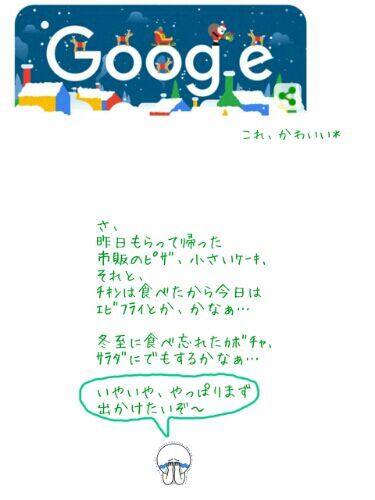 Google
これ、かわいい*
さ、
昨日もらって帰った
市販のﾋﾟｻﾞ、小さいｹｰｷ、
それと、
ﾁｷﾝは食べたから今日は
ｴﾋﾞﾌﾗｲとか、かなぁ…
冬至に食べ忘れたｶﾎﾞﾁｬ、
ｻﾗﾀﾞにでもするかなぁ…
いやいや、やっぱりまず
出かけたいぞ～